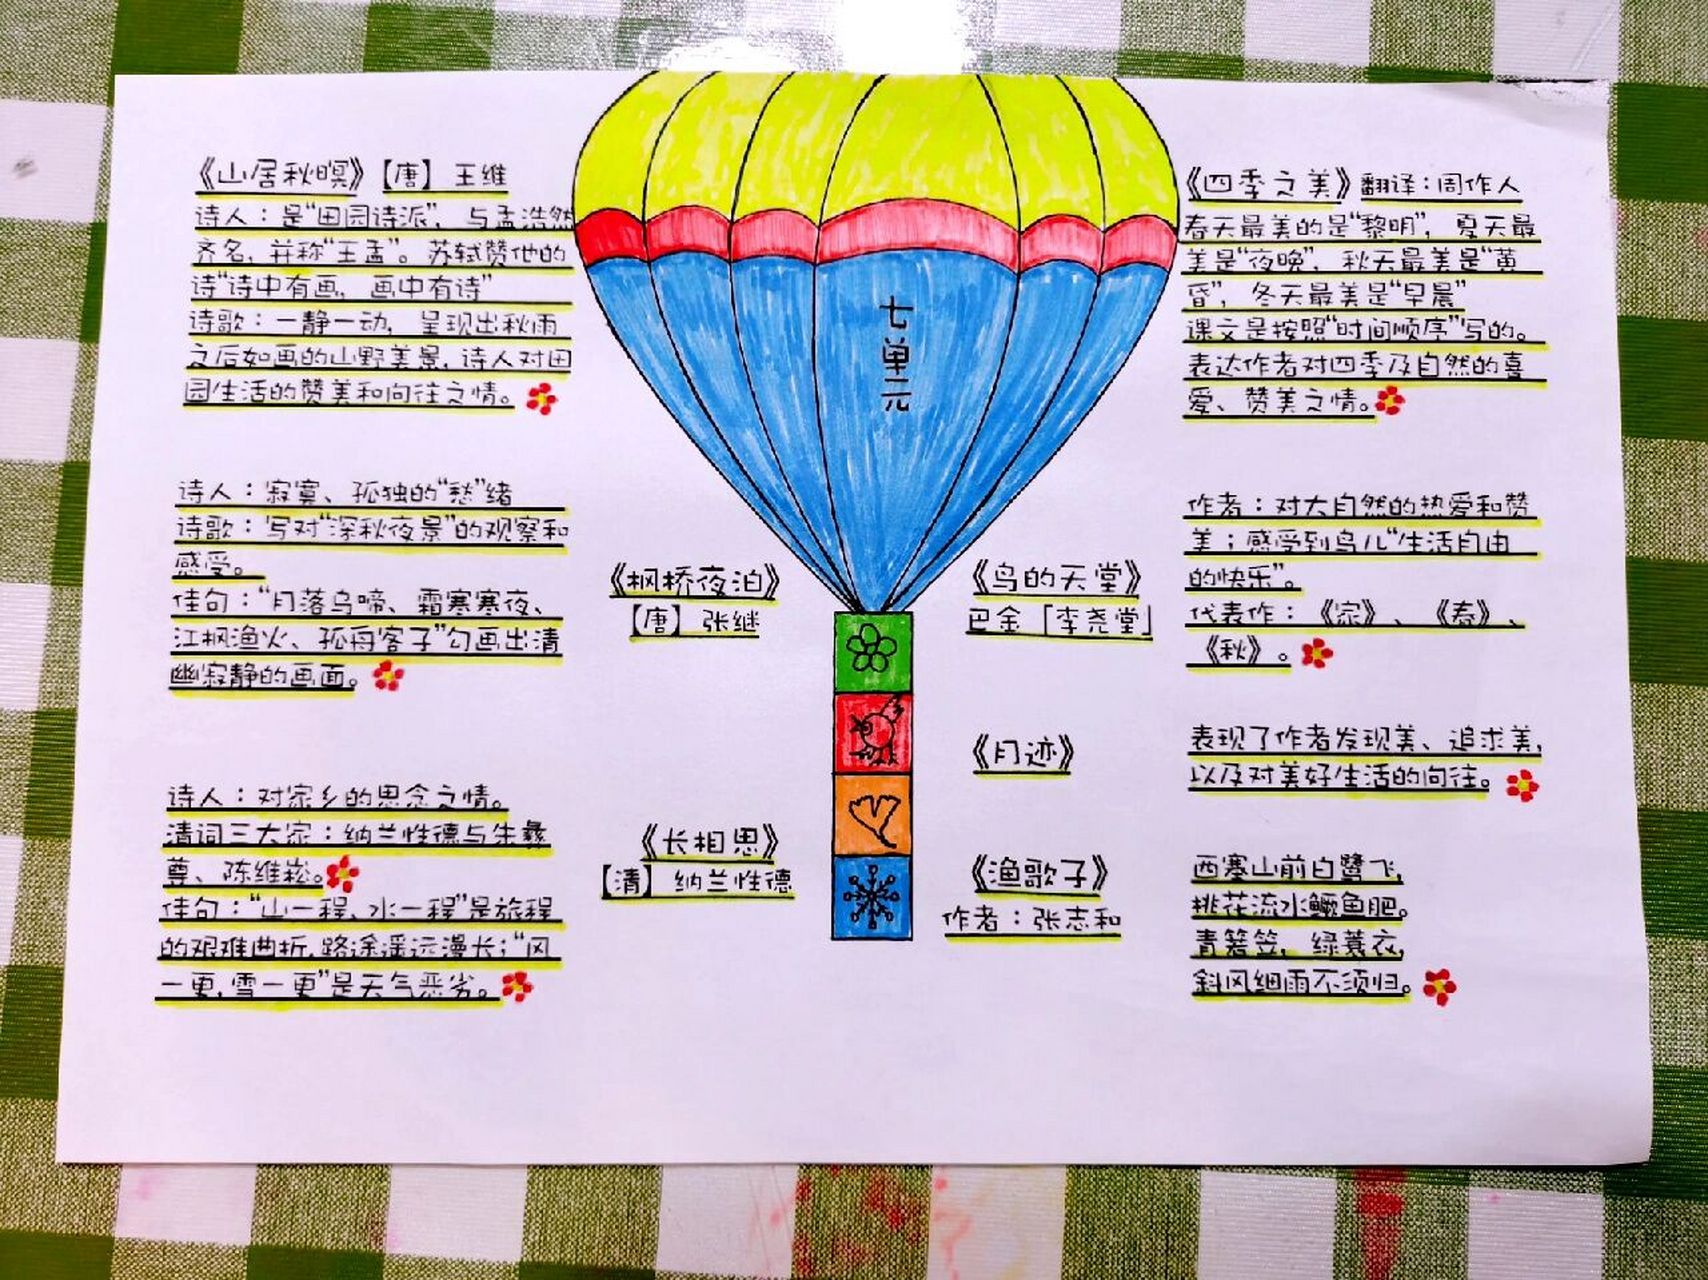 《山居秋暝》【唐】王维
诗人：是“田园诗派”，与孟浩然
齐名，并称“王孟”。苏轼赞他的
诗“诗中有画，画中有诗”
诗歌：一静一动，呈现出秋雨
之后如画的山野美景，诗人对田
园生活的赞美和向往之情。
诗人：寂寞、孤独的“愁”绪
诗歌：写对“深秋夜景”的观察和
感受。
佳句：“月落乌啼、霜寒寒夜、
江枫渔火、孤舟客子”勾画出清
幽寂静的画面。
诗人：对家乡的思念之情。
清词三大家：纳兰性德与朱彝
尊、陈维崧。
佳句：“山一程、水一程”是旅程
的艰难曲折，路途遥远漫长；“风
一更，雪一更”是天气恶劣。
七单元
《枫桥夜泊》
【唐】张继
《长相思》
【清】纳兰性德
《鸟的天堂》
巴金［李尧堂］
《月迹》
《渔歌子》
作者：张志和
《四季之美》翻译：周作人
春天最美的是“黎明”，夏天最
美是“夜晚”，秋天最美是“黄
昏”，冬天最美是“早晨”
课文是按照“时间顺序”写的。
表达作者对四季及自然的喜
爱、赞美之情。
作者：对大自然的热爱和赞
美；感受到鸟儿“生活自由
的快乐”。
代表作：《家》、《春》、
《秋》。
表现了作者发现美、追求美，
以及对美好生活的向往。
西塞山前白鹭飞，
桃花流水鳜鱼肥。
青箬笠，绿蓑衣，
斜风细雨不须归。